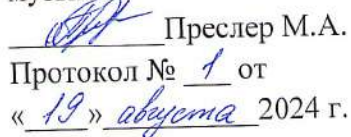 Преслер М.А.
Протокол № 1 от
« 19 » августа 2024 г.